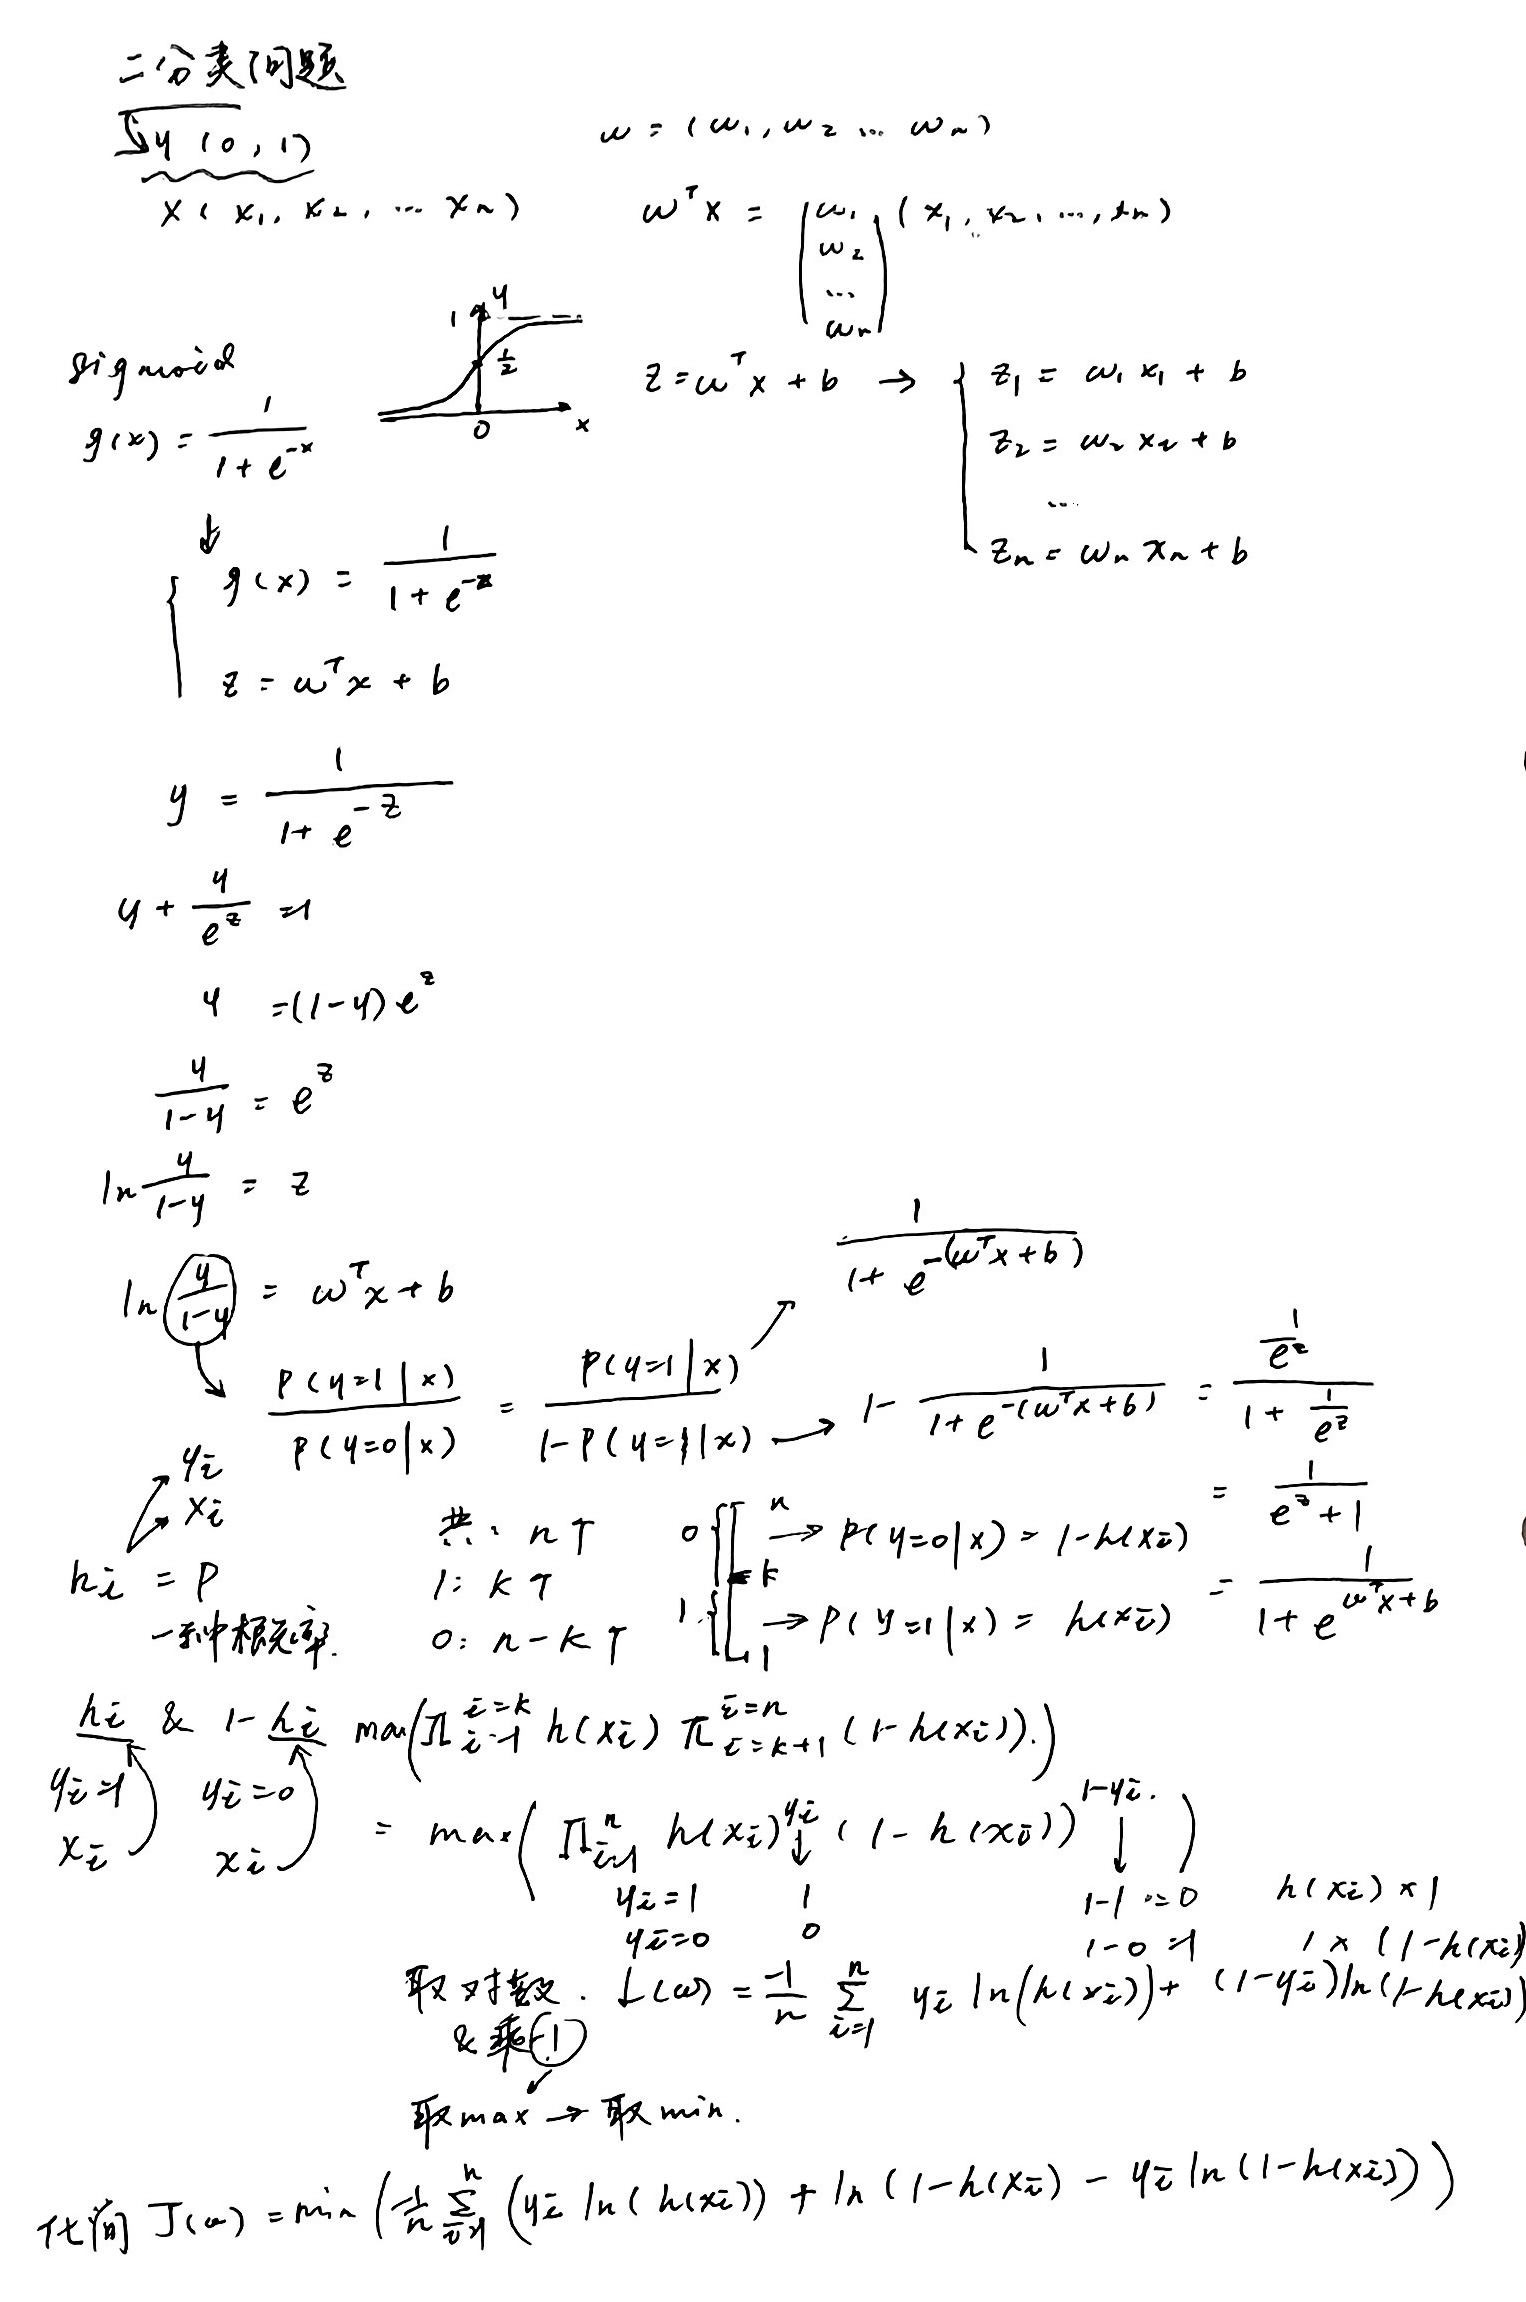 二分类问题
y (0, 1)
w = (w₁, w₂ ... wₙ)
X ( x₁, x₂, ... xₙ)
wᵀx = (w₁ w₂ ... wₙ) (x₁, x₂, ..., xₙ)
1 y
1/2
0 x
sigmoid
g(x) = 1 / (1 + e^(-x))
z = wᵀx + b → { z₁ = w₁x₁ + b
z₂ = w₂x₂ + b
...
zₙ = wₙxₙ + b
↓
{ g(x) = 1 / (1 + e^(-z))
z = wᵀx + b
y = 1 / (1 + e^(-z))
y + y/e^z = 1
y = (1-y) e^z
y/(1-y) = e^z
ln y/(1-y) = z
1 / (1 + e^(-(wᵀx + b)))
ln (y/(1-y)) = wᵀx + b
P(y=1|x) / P(y=0|x) = P(y=1|x) / (1-P(y=1|x)) → 1 - 1 / (1 + e^(-(wᵀx+b))) = (1/e^z) / (1 + 1/e^z)
= 1 / (e^z + 1)
= 1 / (1 + e^(wᵀx+b))
yᵢ
xᵢ
hᵢ = P
一种概率.
共: n个
1: k个
0: n-k个
0 { n → P(y=0|x) = 1-h(xᵢ)
k
1 { 1 → P(y=1|x) = h(xᵢ)
hᵢ & 1-hᵢ max(∏_{i=1}^{i=k} h(xᵢ) ∏_{i=k+1}^{i=n} (1-h(xᵢ)).)
yᵢ=1 yᵢ=0
xᵢ xᵢ
= max( ∏_{i=1}^{n} h(xᵢ)^{yᵢ} (1-h(xᵢ))^{1-yᵢ}. )
yᵢ=1 1 1-1=0 h(xᵢ)×1
yᵢ=0 0 1-0=1 1×(1-h(xᵢ)
取对数. L(w) = -1/n ∑_{i=1}^{n} yᵢ ln(h(xᵢ)) + (1-yᵢ)ln(1-h(xᵢ))
& 乘-1
取max → 取min.
化简 J(w) = min (-1/n ∑_{i=1}^{n} (yᵢ ln(h(xᵢ)) + ln(1-h(xᵢ) - yᵢ ln(1-h(xᵢ)))